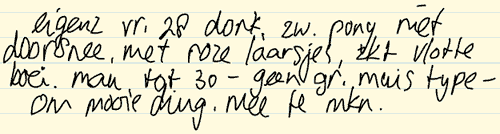 eigenz vr. 28 donk. zw. pony met
doorsnee, met roze laarsjes, zkt vlotte
boei. man, tot 30 - geen gr. muis type -
om mooie ding. mee te mkn.